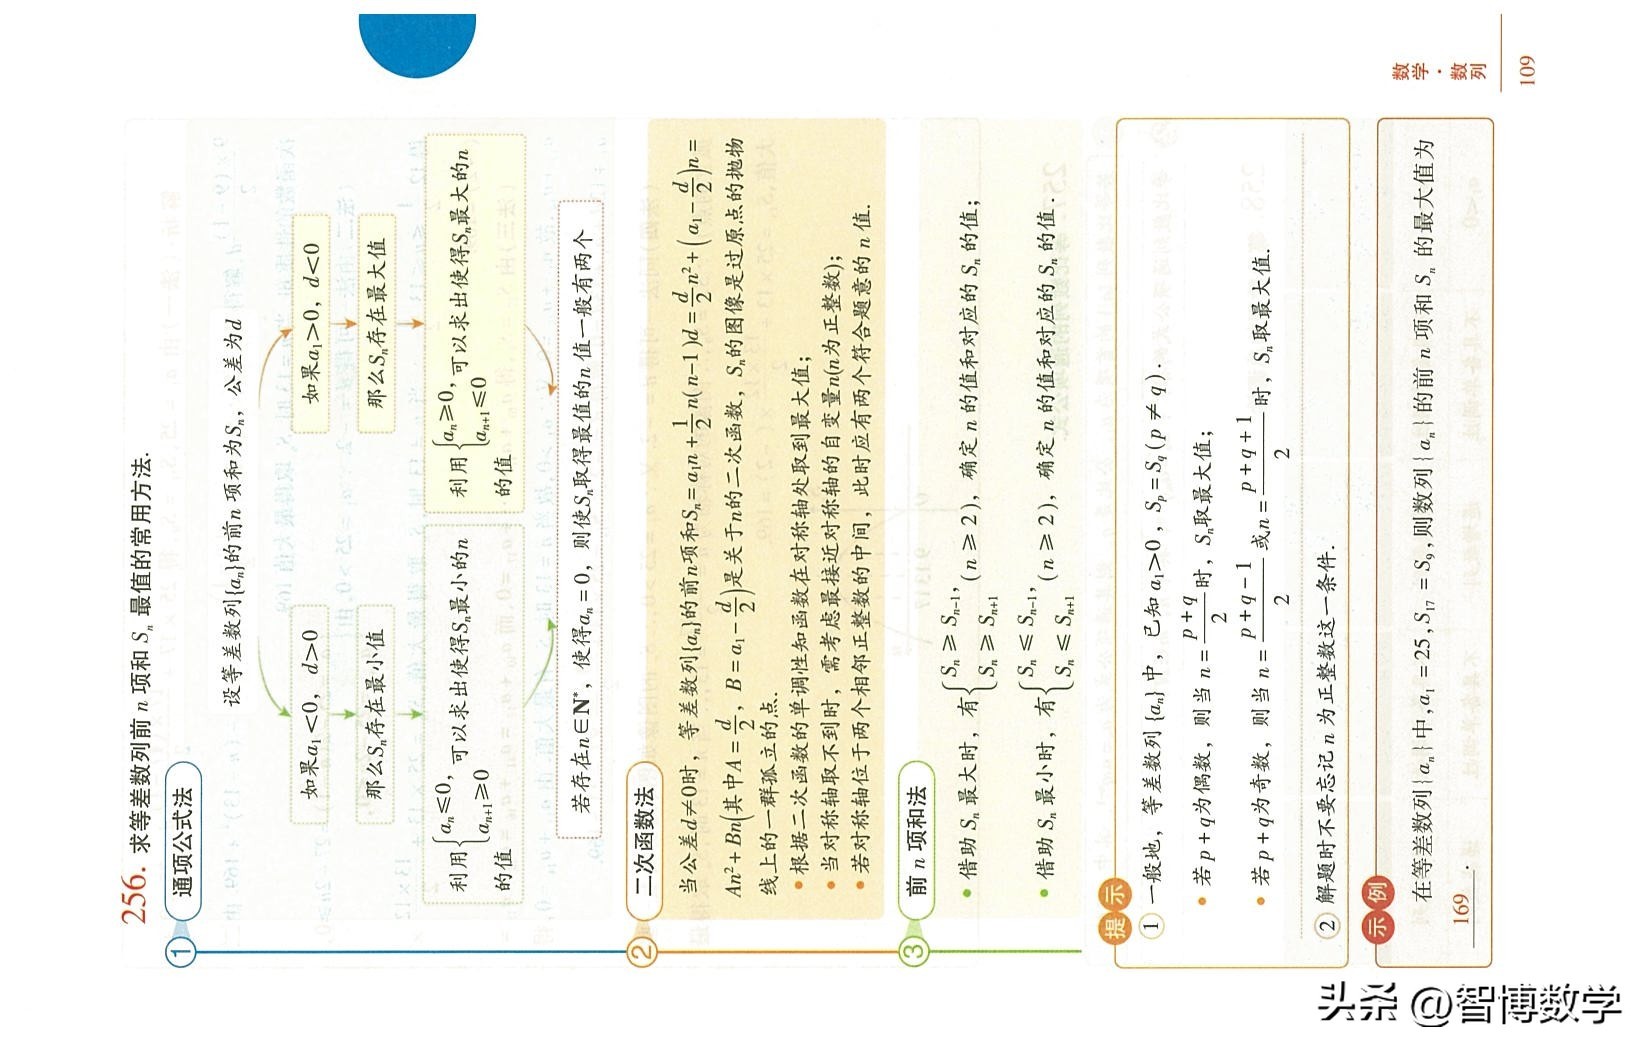 256. 求等差数列前 n 项和 Sₙ 最值的常用方法.
① 通项公式法
设等差数列{aₙ}的前n 项和为Sₙ，公差为d
如果a₁<0，d>0
那么Sₙ存在最小值
利用{aₙ≤0, aₙ₊₁≥0 可以求出使得Sₙ最小的n
的值
如果a₁>0，d<0
那么Sₙ存在最大值
利用{aₙ≥0, aₙ₊₁≤0 可以求出使得Sₙ最大的n
的值
若存在n∈N*，使得aₙ=0，则使Sₙ取得最值的n 值一般有两个
② 二次函数法
当公差d≠0时，等差数列{aₙ}的前n项和Sₙ=a₁n+1/2n(n−1)d=d/2n²+(a₁−d/2)n=
An²+Bn(其中A=d/2，B=a₁−d/2)是关于n的二次函数，Sₙ的图像是过原点的抛物
线上的一群孤立的点.
• 根据二次函数的单调性知函数在对称轴处取到最大值；
• 当对称轴取不到时，需考虑最接近对称轴的自变量n(n为正整数)；
• 若对称轴位于两个相邻正整数的中间，此时应有两个符合题意的 n 值.
③ 前 n 项和法
• 借助 Sₙ 最大时，有{Sₙ≥Sₙ₋₁, Sₙ≥Sₙ₊₁ (n≥2)，确定 n 的值和对应的 Sₙ 的值；
• 借助 Sₙ 最小时，有{Sₙ≤Sₙ₋₁, Sₙ≤Sₙ₊₁ (n≥2)，确定 n 的值和对应的 Sₙ 的值.
提示
① 一般地，等差数列{aₙ}中，已知 a₁>0，Sₚ=S_q(p≠q).
• 若p+q为偶数，则当 n=(p+q)/2时，Sₙ取最大值；
• 若p+q为奇数，则当 n=(p+q−1)/2或n=(p+q+1)/2时，Sₙ取最大值.
② 解题时不要忘记 n 为正整数这一条件.
示例
在等差数列{aₙ}中,a₁=25,S₁₇=S₉,则数列{aₙ}的前 n 项和 Sₙ 的最大值为
169.
数学·数列
109
头条 @智博数学